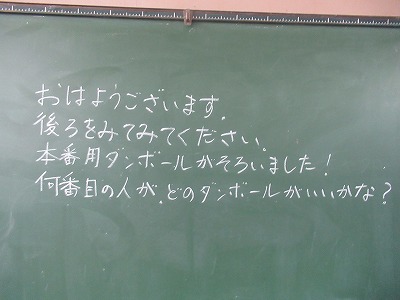 おはようございます.
後ろをみてみてください。
本番用ダンボールがそろいました!
何番目の人が.どのダンボールがいいかな?